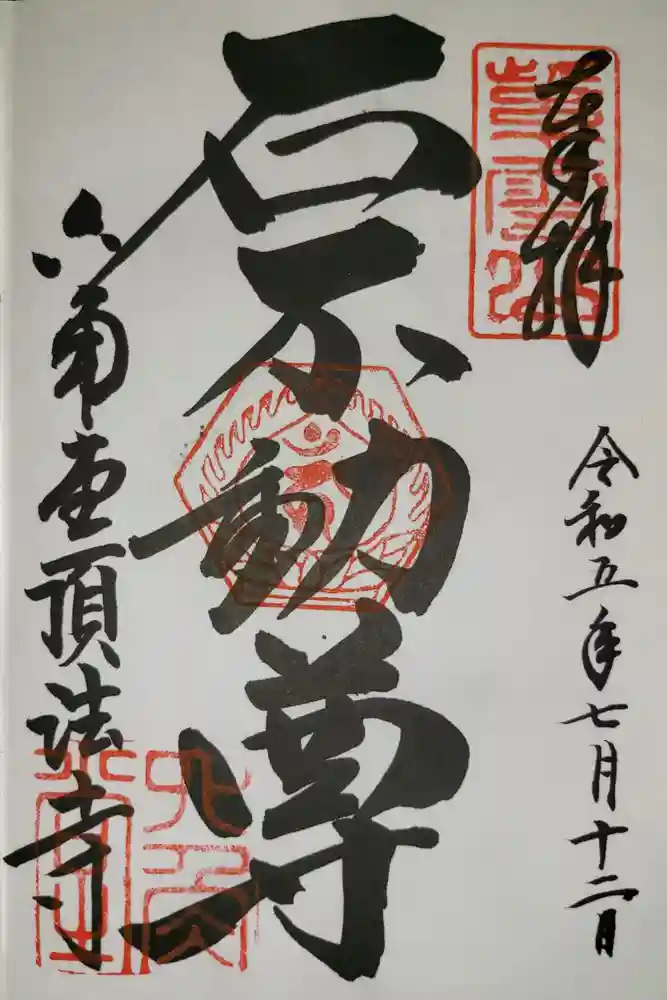 奉拝
令和五年七月十二日
石不動尊
六角堂頂法寺